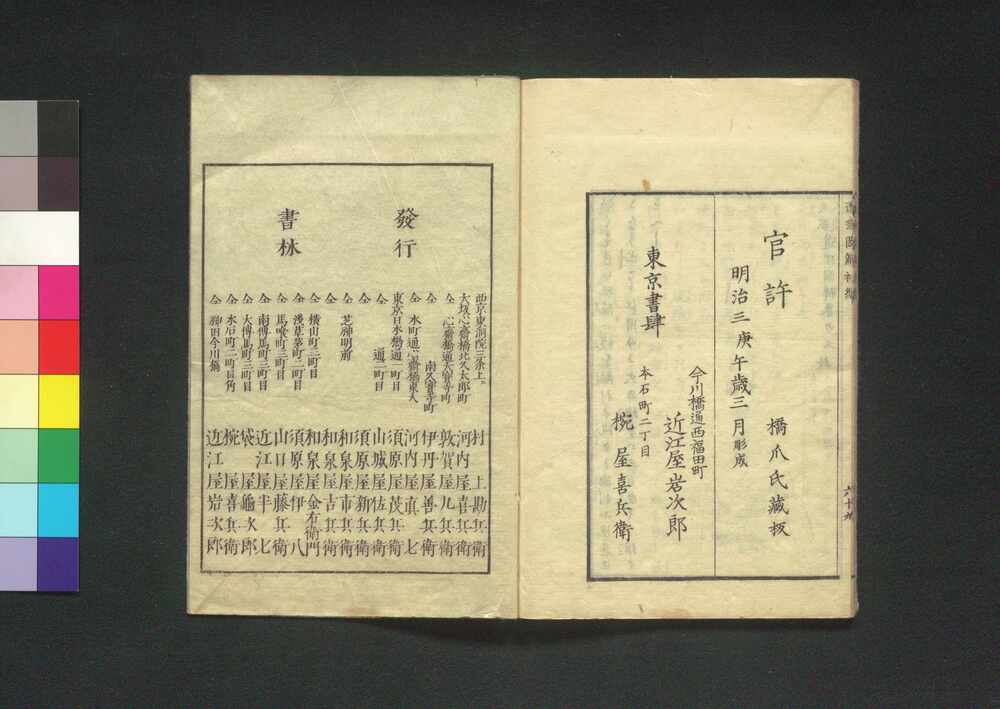 官許
明治三庚午歳三月彫成
橋爪氏藏板
東京書肆
今川橋通西福田町
近江屋岩次郎
本石町二丁目
椀屋喜兵衛
六十九
發行
書林
西京東洞院三条上ル 村上勘兵衛
大坂心斎橋北久太郎町 河内屋喜兵衛
仝 心斎橋通大寶寺町 敦賀屋九兵衛
仝 南久寶寺町 伊丹屋善兵衛
仝 本町通心斎橋東入 河内屋真七
東京日本橋通一町目 須原屋茂兵衛
仝 通二町目 山城屋佐兵衛
仝 須原屋新兵衛
仝 芝神明前 和泉屋市兵衛
仝 和泉屋吉兵衛
仝 横山町三町目 和泉屋金右衛門
仝 浅草茅町二町目 須原屋伊八
仝 馬喰町二町目 山口屋藤兵衛
仝 南傳馬町三町目 近江屋半七
仝 大傳馬町三町目 袋屋龜次郎
仝 本石町二町目角 椀屋喜兵衛
仝 神田今川橋 近江屋岩次郎